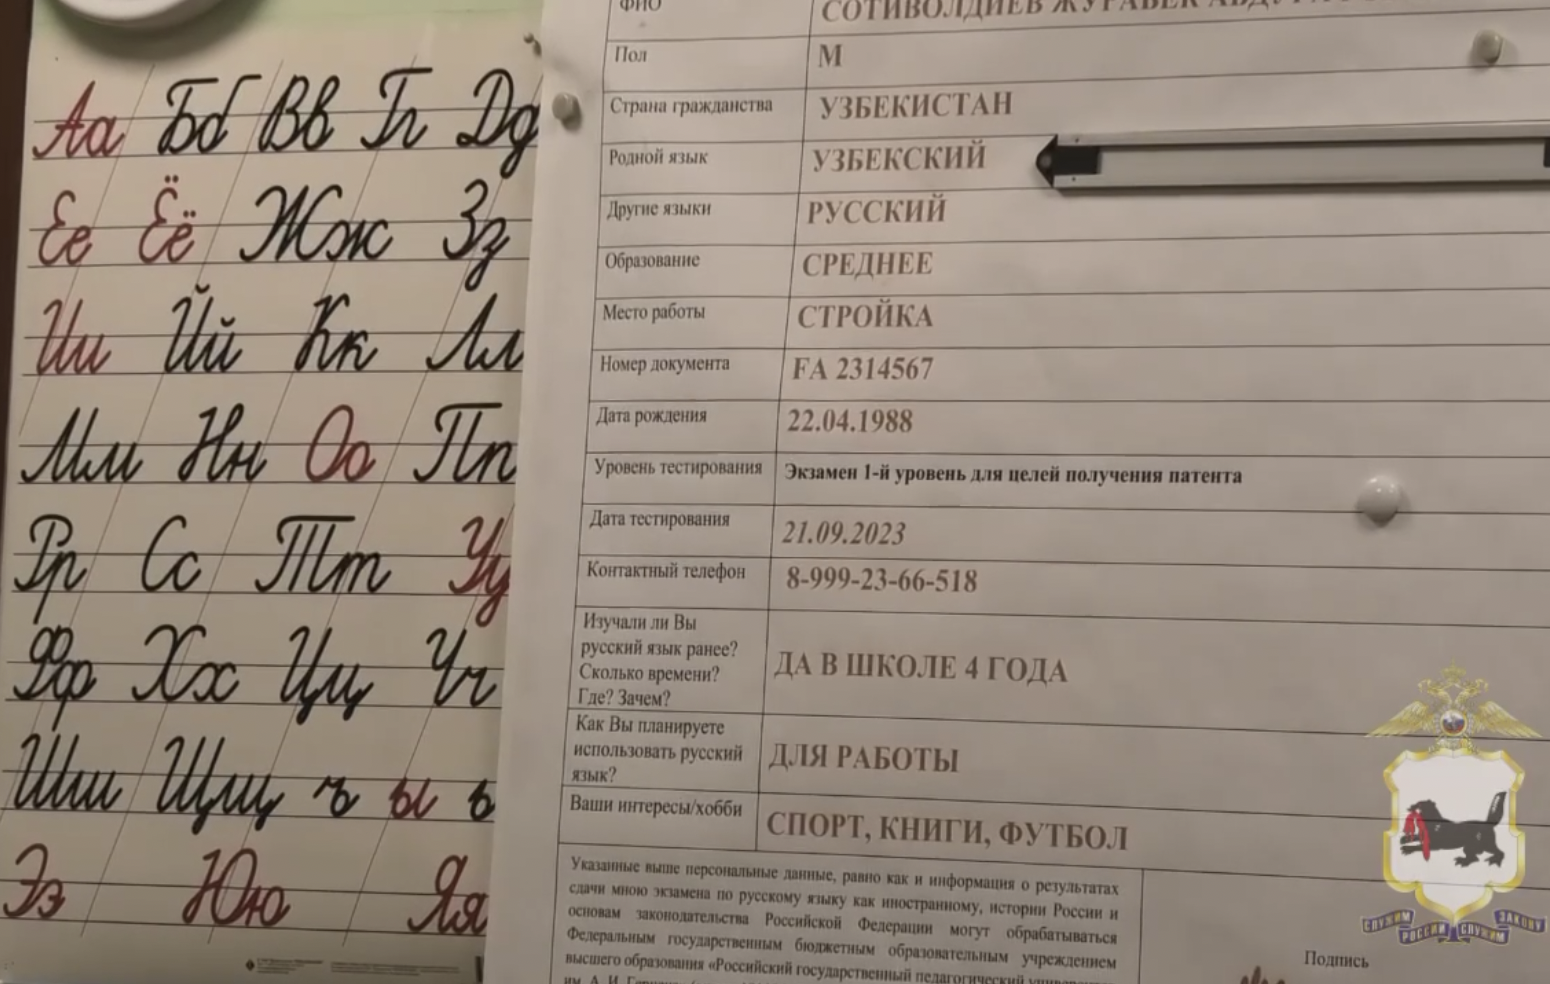 Аа Бб Вв Гг Дд
Ее Ёё Жж Зз
Ии Йй Кк Лл
Мм Нн Оо Пп
Рр Сс Тт Уу
Фф Хх Цц Чч
Шш Щщ ъ ы ь
Ээ Юю Яя
ФИО СОТИВОЛДИЕВ ЖУРАБЕК
Пол М
Страна гражданства УЗБЕКИСТАН
Родной язык УЗБЕКСКИЙ
Другие языки РУССКИЙ
Образование СРЕДНЕЕ
Место работы СТРОЙКА
Номер документа FA 2314567
Дата рождения 22.04.1988
Уровень тестирования Экзамен 1-й уровень для целей получения патента
Дата тестирования 21.09.2023
Контактный телефон 8-999-23-66-518
Изучали ли Вы
русский язык ранее?
Сколько времени?
Где? Зачем?
ДА В ШКОЛЕ 4 ГОДА
Как Вы планируете
использовать русский
язык?
ДЛЯ РАБОТЫ
Ваши интересы/хобби СПОРТ, КНИГИ, ФУТБОЛ
Указанные выше персональные данные, равно как и информация о результатах
сдачи мною экзамена по русскому языку как иностранному, истории России и
основам законодательства Российской Федерации могут обрабатываться
Федеральным государственным бюджетным образовательным учреждением
высшего образования «Российский государственный педагогический
им. А. И.
Подпись
СЛУЖИМ РОССИИ СЛУЖИМ ЗАКОНУ